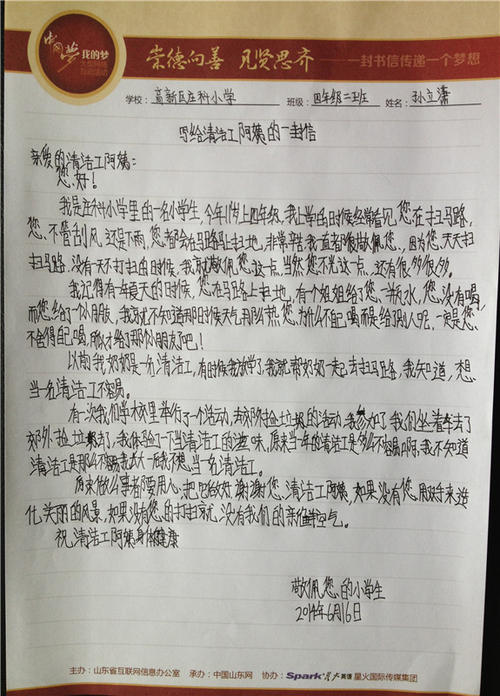 中国梦 我的梦
大型网络
互动活动
崇德向善 见贤思齐 一封书信传递一个梦想
学校:高新区庄科小学 班级:四年级二班 姓名:孙立潇
写给清洁工阿姨的一封信
亲爱的清洁工阿姨:
您好!
我是庄科小学里的一名小学生,今年11岁上四年级,我上学的时候经常看见您在扫马路,
您,不管刮风还是下雨,您都会在马路上扫地,非常辛苦我一直都很敬佩您,因为您天天扫
扫马路,没有一天不打扫的时候,我就敬佩您这点,当然您不光这一点、还有很多很多。
我记得有一年夏天的时候,您在马路上扫地,有个姐姐给了您一瓶水,您没有喝,
而您给了一个小朋友,我就不知道那时候天气那么热您为什么不自己喝而是给别人呢,一定是您
不舍得自己喝,所以才给了那个小朋友了吧!
以前我奶奶是一名清洁工,有时候我放学了,我就帮奶奶一起去扫马路,我知道,想
当一名清洁工不容易。
有一次我们学校里举行了一个活动,去郊外捡垃圾的活动,我参加了,我们坐着车去了
郊外捡垃圾了,我体验了一下当清洁工的滋味,原来当一年的清洁工是多么不容易啊,我不知道
清洁工是那么不容易我长大一后我不想当一名清洁工。
原来做什么事都要用心,把它做好,谢谢您,清洁工阿姨,如果没有您,用双手来造
化美丽的风景,如果没有您的打扫就没有我们的新鲜空气。
祝清洁工阿姨身体健康
敬佩您的小学生
2014年6月16日
主办:山东省互联网信息办公室 承办:中国山东网 协办:Spark星火英语 星火国际传媒集团